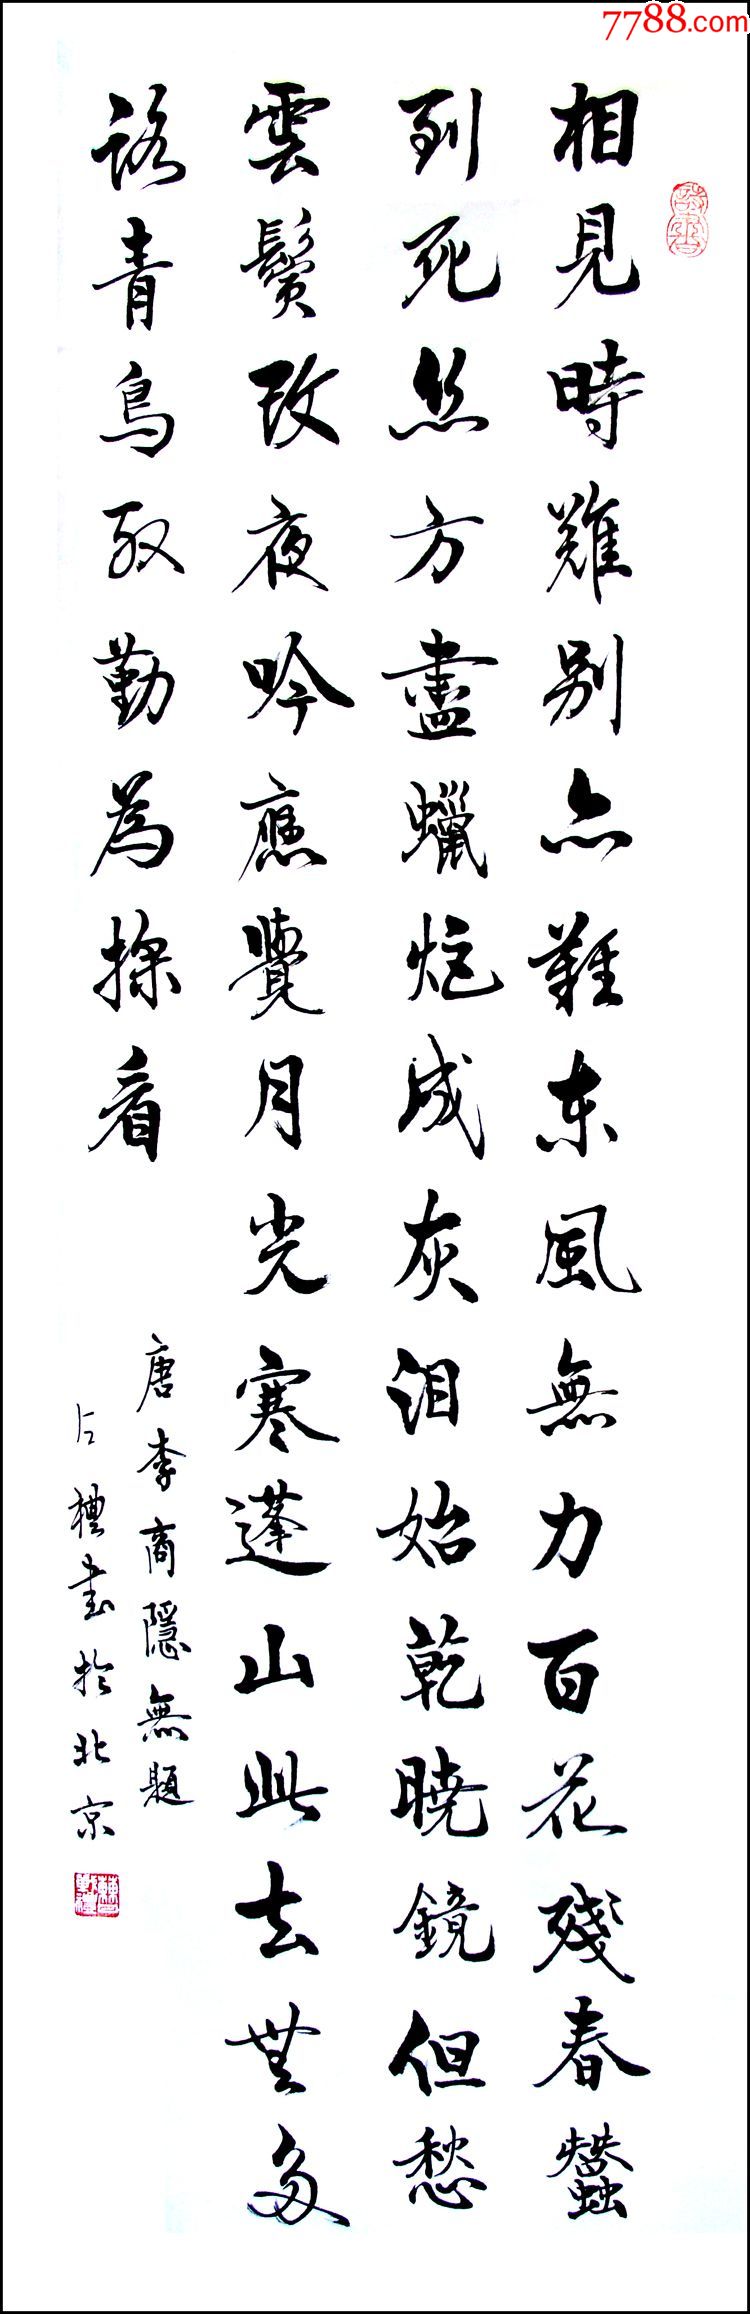 7788.com
相見時難別亦難东風無力百花殘春蠶
到死丝方盡蠟炬成灰泪始乾曉鏡但愁
雲鬢改夜吟應覺月光寒蓬山此去無多
路青鳥殷勤為探看
唐李商隱無題
禮書於北京